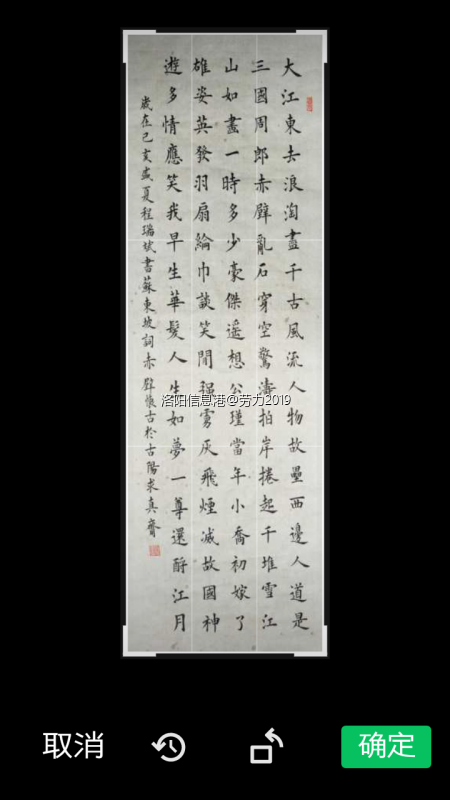 大江東去浪淘盡千古風流人物故壘西邊人道是
三國周郎赤壁亂石穿空驚濤拍岸捲起千堆雪江
山如畫一時多少豪傑遥想公瑾當年小喬初嫁了
雄姿英發羽扇綸巾談笑間强虜灰飛煙滅故國神
遊多情應笑我早生華髮人生如夢一尊還酹江月
歲在己亥盛夏程瑞斌書蘇東坡詞赤壁懷古於古陽求真齋
洛阳信息港@劳力2019
取消
确定